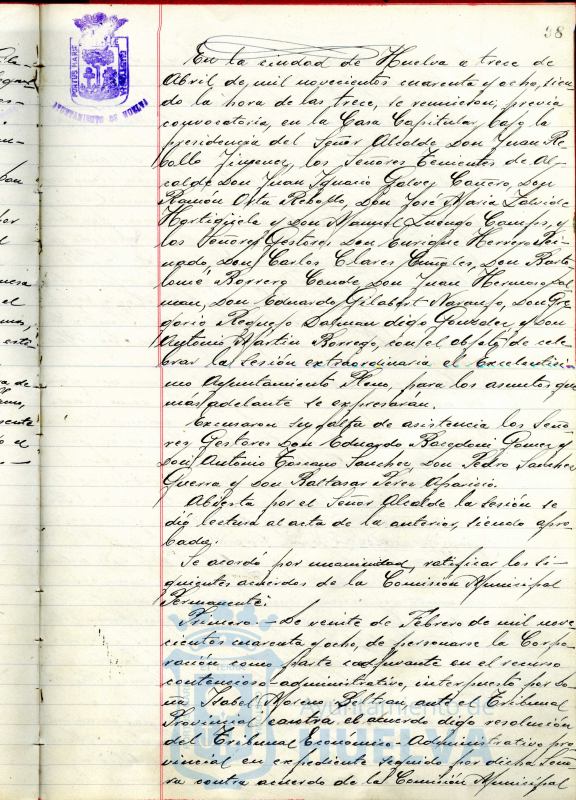 38
PORTUS MARIS
AYUNTAMIENTO DE HUELVA
En la ciudad de Huelva a trece de
Abril de mil novecientos cuarenta y ocho, sien-
do la hora de las trece, se reunieron, previa
convocatoria, en la Casa Capitular, bajo la
presidencia del Señor Alcalde Don Juan Re-
bollo Jimenez, los Señores Tenientes de Al-
calde Don Juan Ignacio Galvez Cañero, Don
Ramón Rebollo, Don José María
Hortigüela y Don Manuel Luengo Campos, y
los Señores Gestores Don Enrique Herrero Pei-
nado, Don Carlos Clares Don Barto-
lomé Borrero Conde, Don Juan Hermoso Pal-
man, Don Eduardo Gilabert Naranjo, Don Gre-
gorio Requejo digo González, y Don
Antonio Martín Borrego, con el objeto de cele-
brar la sesión extraordinaria el Excelentísi-
mo Ayuntamiento Pleno, para los asuntos que
mas adelante se expresarán.
Excusaron su falta de asistencia los Seño-
res Gestores Don Eduardo Gomez y
Don Antonio Toscano Sanchez, Don Pedro Sanchez
Guerra y Don Baltasar Perez Aparicio.
Abierta por el Señor Alcalde la sesión se
dió lectura al acta de la anterior, siendo apro-
bada.
Se acordó por unanimidad, ratificar los si-
guientes acuerdos de la Comisión Municipal
Permanente:
Primero.- De veinte de Febrero de mil nove-
cientos cuarenta y ocho, de personarse la Corpo-
ración como parte coadyuvante en el recurso
contencioso-administrativo, interpuesto por Do-
ña Isabel Moreno Beltrán, ante el Tribunal
Provincial, contra el acuerdo digo resolución
del Tribunal Económico-Administrativo pro-
vincial en expediente seguido por dicha Seño-
ra contra acuerdo de la Comisión Municipal
Ayuntamiento de
HUELVA